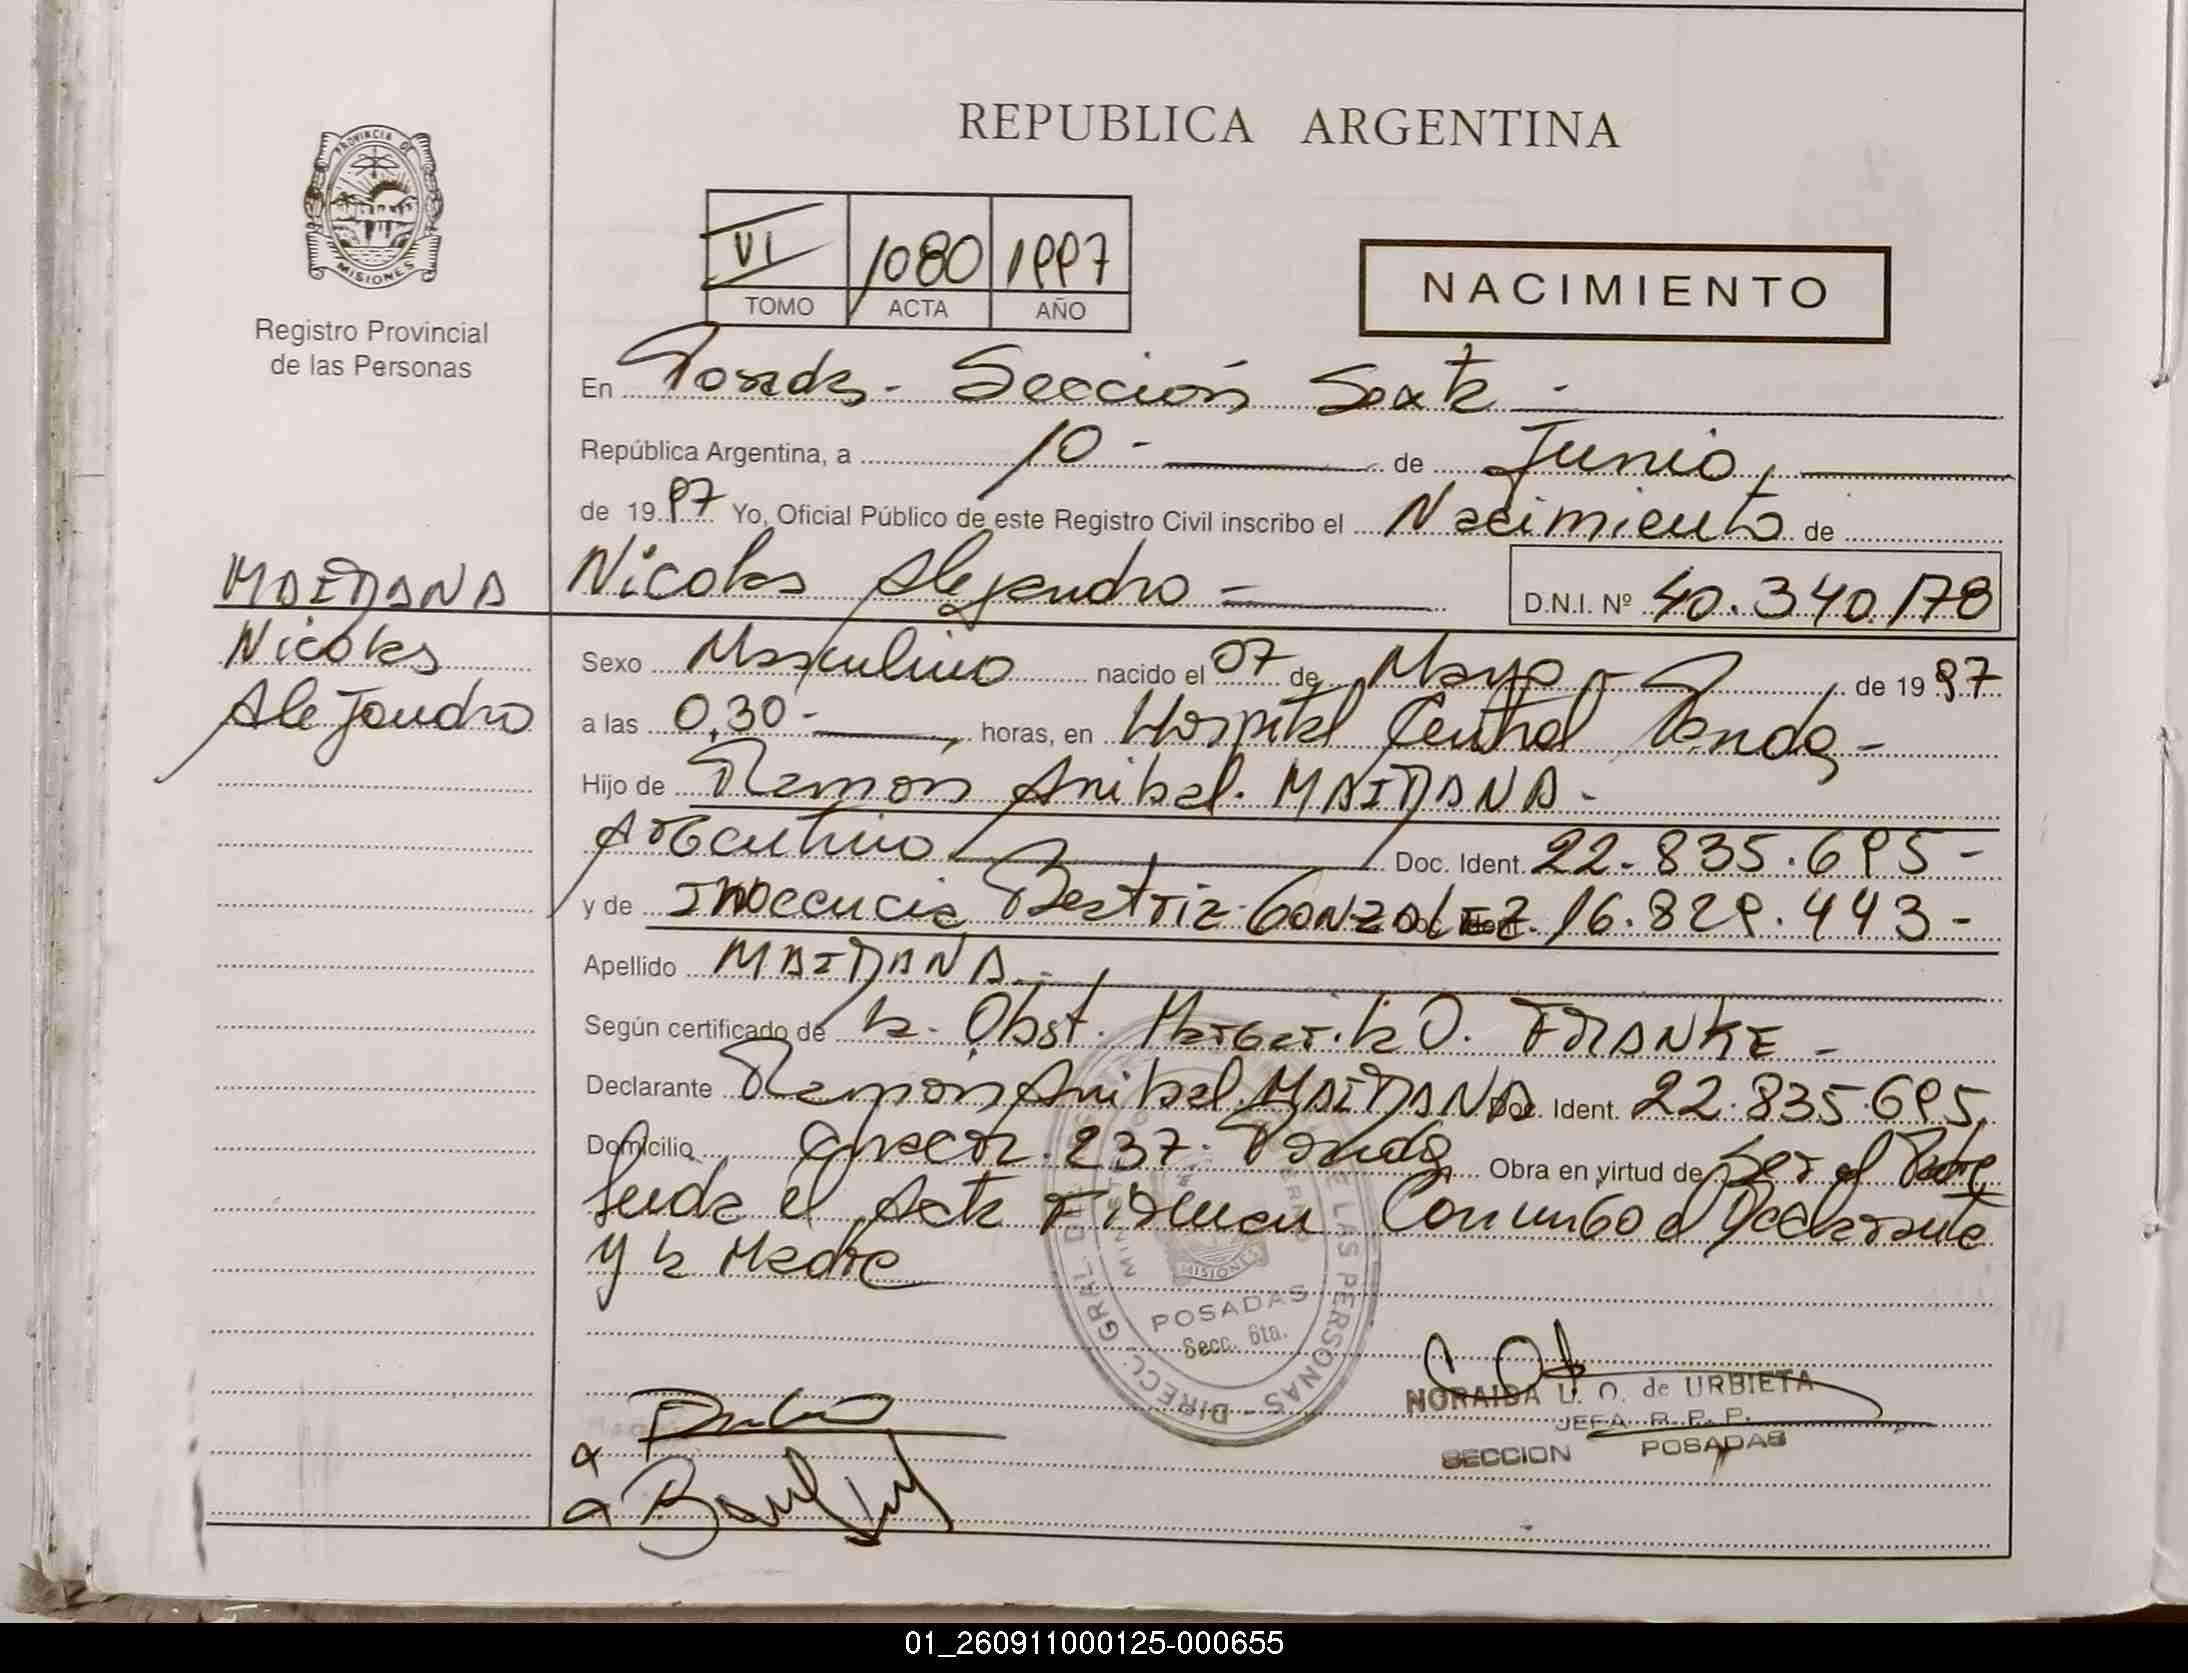 REPUBLICA ARGENTINA
PROVINCIA DE
MISIONES
Registro Provincial
de las Personas
VI 1080 1997
TOMO ACTA AÑO
NACIMIENTO
En Posadas - Sección Sexta -
República Argentina, a 10 - de Junio,
de 1997 Yo, Oficial Público de este Registro Civil inscribo el Nacimiento de
MAIDANA
Nicolas
Alejandro
Nicolas Alejandro - D.N.I. Nº 40.340.178
Sexo Masculino nacido el 07 de Mayo - de 1997
a las 0,30 - horas, en Hospital Central Posadas -
Hijo de Ramon Anibal. MAIDANA -
Argentino Doc. Ident. 22.835.695 -
y de Inocencia Beatriz GONZALEZ 16.829.443 -
Apellido MAIDANA -
Según certificado de la Obst. Margarita O. FRANKE -
Declarante Ramon Anibal MAIDANA Doc. Ident. 22.835.695
Domicilio 237. Posadas Obra en virtud de ser el Padre
Leida el Acta Firman Conmigo el Declarante
y la Madre
DIRECC. GRAL. DE LAS PERSONAS
MISIONES
POSADAS
Secc. 6ta.
NORAIDA U. O. de URBIETA
JEFA R. P. P.
SECCION POSADAS
01_260911000125-000655